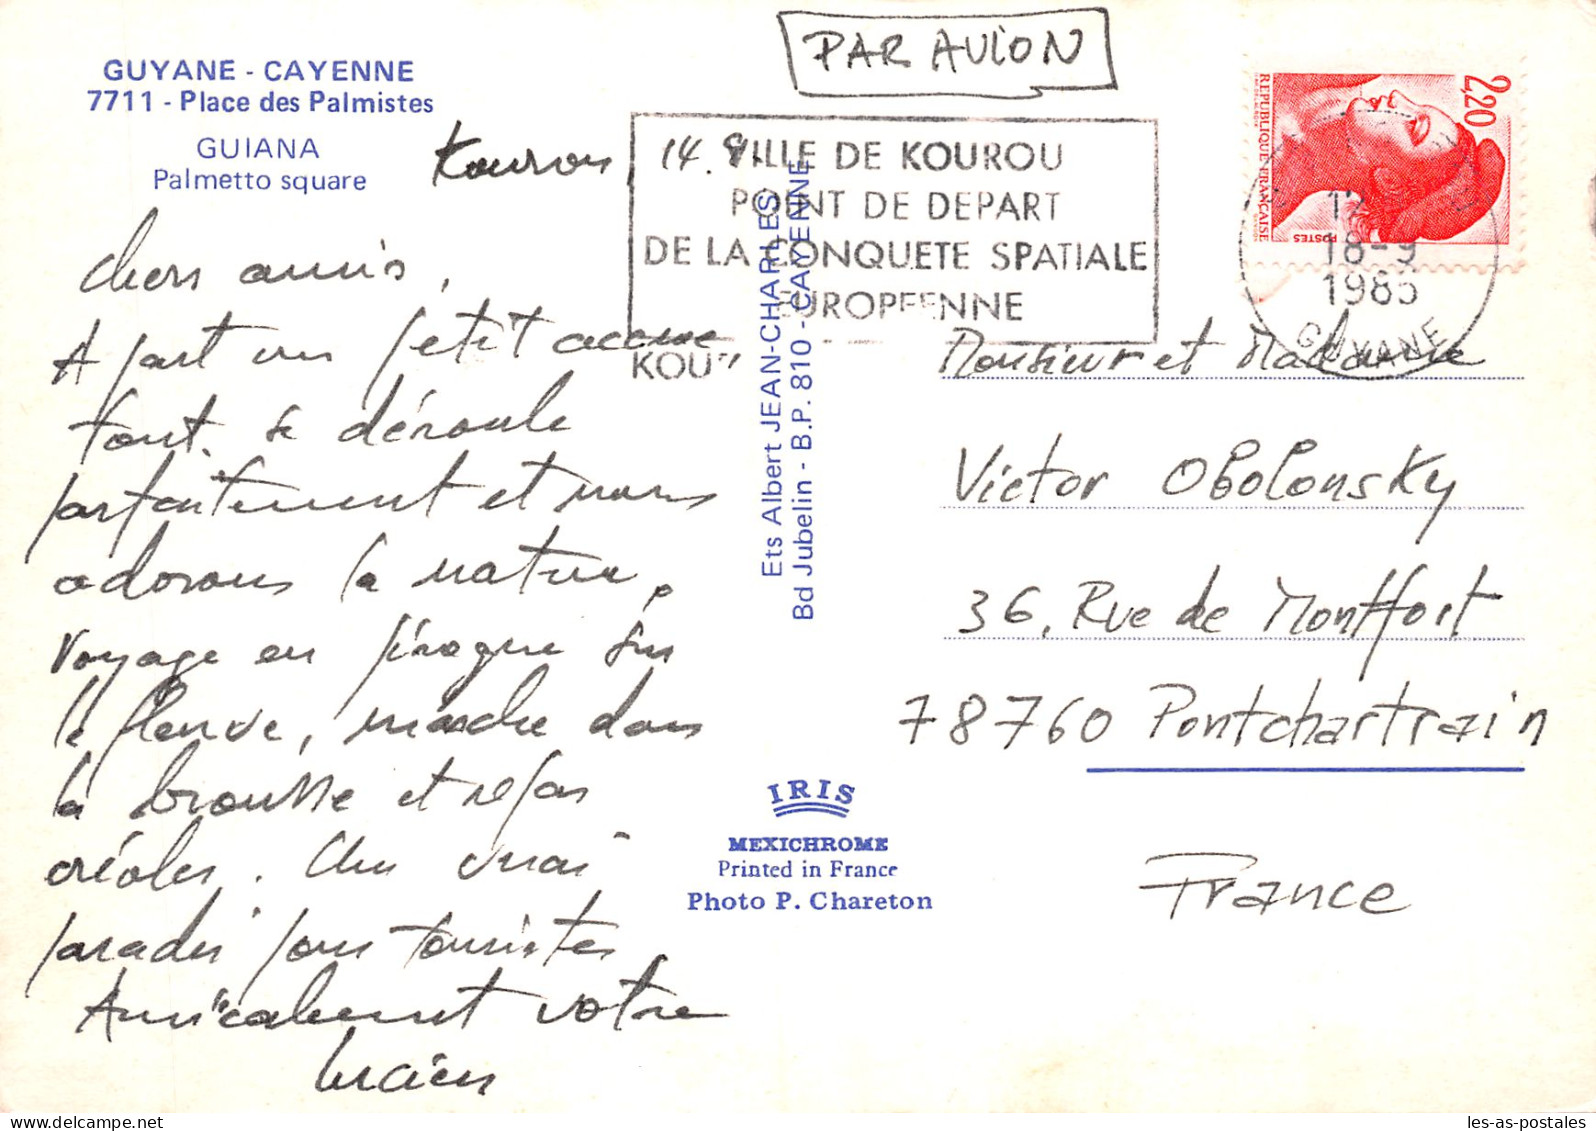 PAR AVION
GUYANE - CAYENNE
7711 - Place des Palmistes
GUIANA
Palmetto square
Kourou, 14.9.
VILLE DE KOUROU
POINT DE DEPART
DE LA CONQUETE SPATIALE
EUROPEENNE
KOU
2,20
REPUBLIQUE FRANÇAISE
POSTES
18-9
1985
GUYANE
Chers amis,
A part un petit
tout se déroule
parfaitement et nous
adorons la nature.
Voyage en pirogue sur
le fleuve, marche dans
la brousse et repas
créoles. Un vrai
paradis pour touristes
Amicalement votre
Lucien
Ets Albert JEAN-CHARLES
Bd Jubelin - B.P. 810 - CAYENNE
Monsieur et Madame
Victor Obolonsky
36, Rue de Montfort
78760 Pontchartrain
France
IRIS
MEXICHROME
Printed in France
Photo P. Chareton
les-as-postales